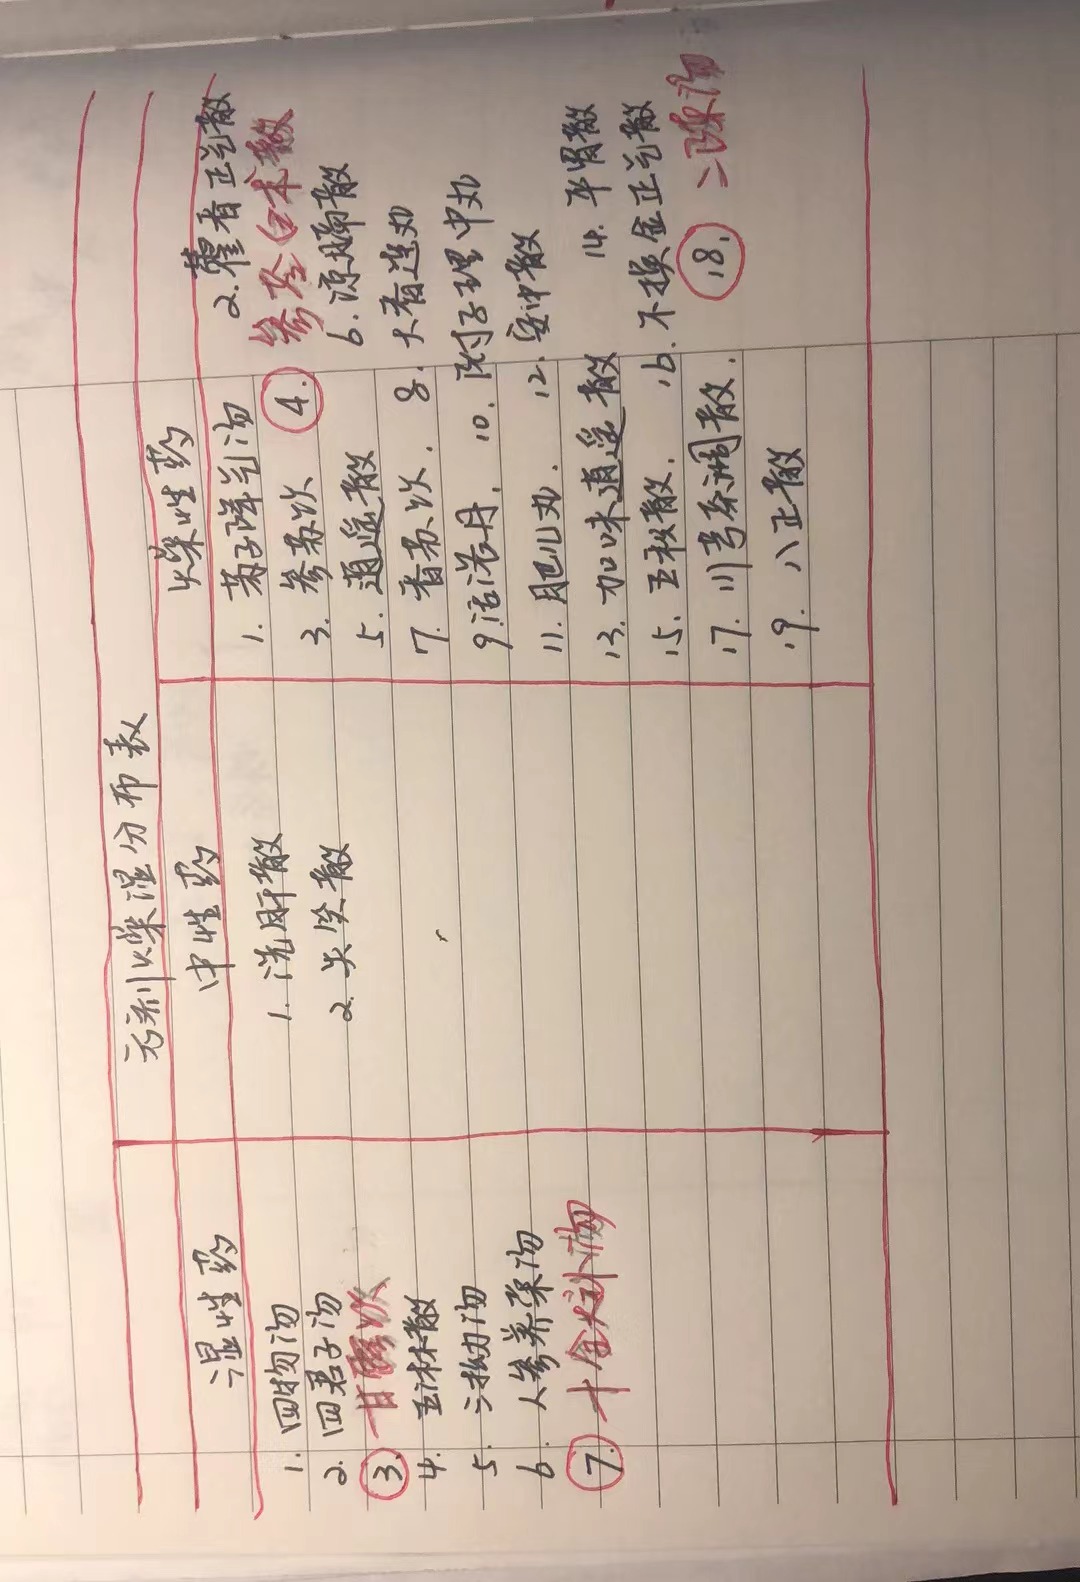 方剂燥湿分布表
湿性药 中性药 燥性药
1. 四物汤
2. 四君子汤
③. 甘露饮
4. 五淋散
5. 三拗汤
6. 人参养荣汤
⑦. 十全大补汤
1. 洗肝散
2. 失笑散
1. 苏子降气汤 2. 藿香正气散
3. 参苏饮 ④. 参苓白术散
5. 逍遥散 6. 凉膈散
7. 香苏饮. 8. 木香连丸
9. 活络丹. 10. 附子理中丸
11. 肥儿丸. 12. 安中散
13. 加味逍遥散 14. 平胃散
15. 五积散. 16. 不换金正气散
17. 川芎茶调散. ⑱. 二陈汤
19. 八正散